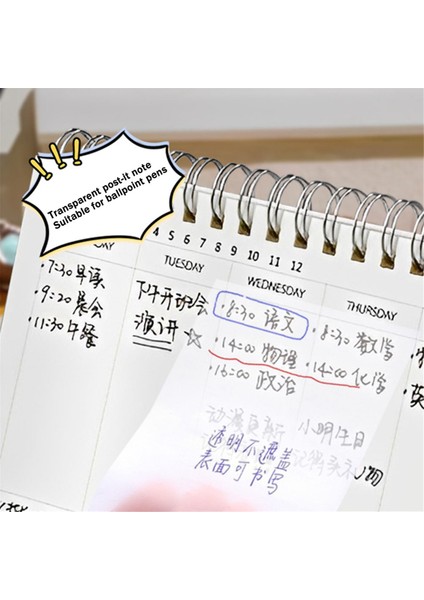 Transparent post-it note
Suitable for ballpoint pens
4 5 6 7 8 9 10 11 12
TUESDAY
WEDNESDAY
THURSDAY
·7:30 早读
·9:20 晨会
·11:30 午餐
下午开班会
演讲
·8:30 语文
·14:00 物理
·16:00 政治
·8:30 数学
·14:00 化学
动漫更新
小明生日
透明不遮盖
表面可书写